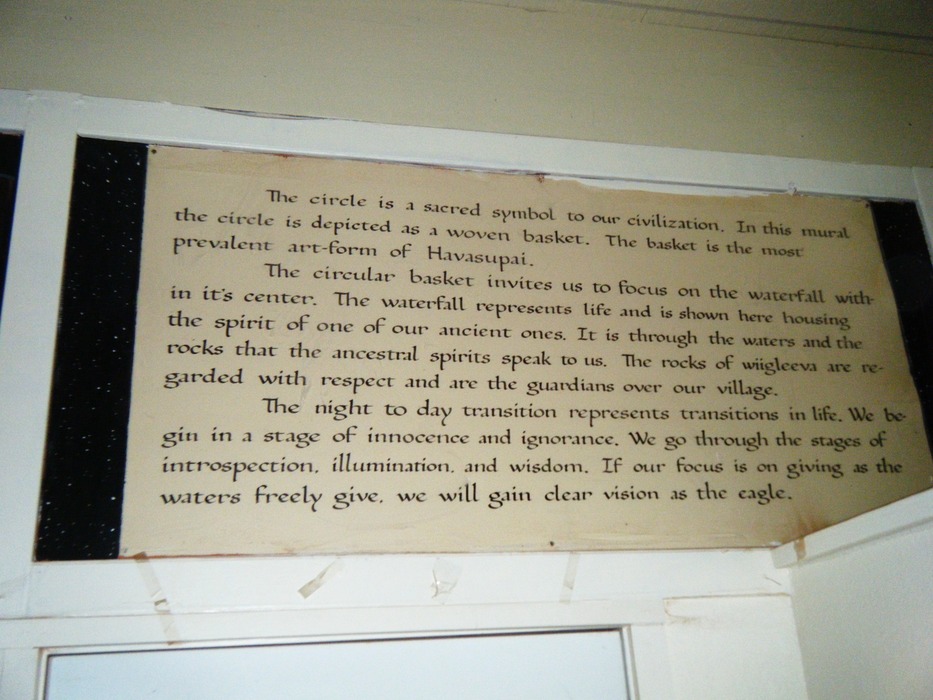 The circle is a sacred symbol to our civilization. In this mural
the circle is depicted as a woven basket. The basket is the most
prevalent art-form of Havasupai.
The circular basket invites us to focus on the waterfall with-
in it's center. The waterfall represents life and is shown here housing
the spirit of one of our ancient ones. It is through the waters and the
rocks that the ancestral spirits speak to us. The rocks of wiigleeva are re-
garded with respect and are the guardians over our village.
The night to day transition represents transitions in life. We be-
gin in a stage of innocence and ignorance. We go through the stages of
introspection, illumination, and wisdom. If our focus is on giving as the
waters freely give, we will gain clear vision as the eagle.